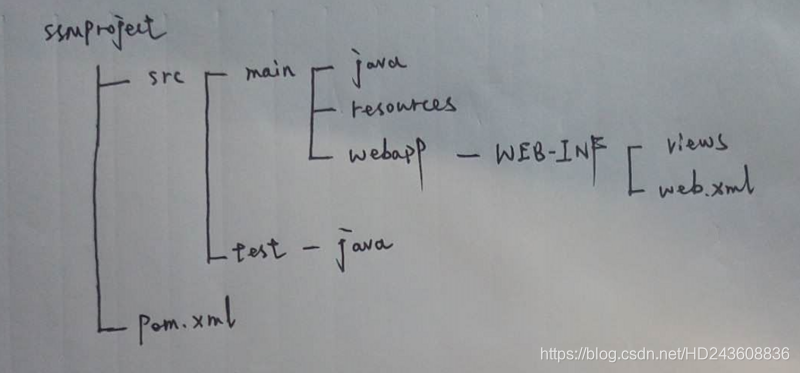 ssmproject
src main java
resources
webapp — WEB-INF views
web.xml
test — java
pom.xml
https://blog.csdn.net/HD243608836